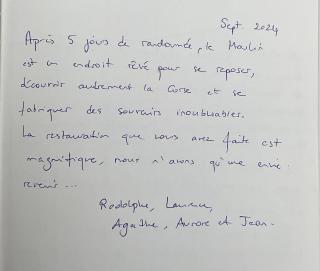 Sept. 2024
Après 5 jours de randonnée, le Moulin
est un endroit rêvé pour se reposer,
découvrir autrement la Corse et se
fabriquer des souvenirs inoubliables.
La restauration que vous avez faite est
magnifique, nous n'avons qu'une envie :
revenir...
Rodolphe, Laurence,
Agathe, Aurore et Jean.